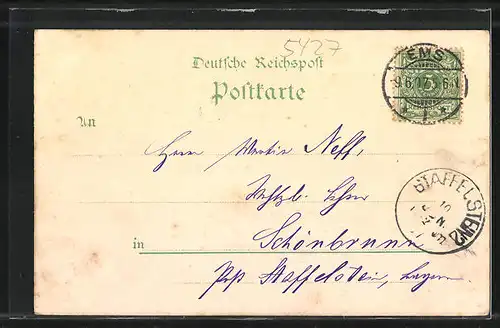 5427
Deutsche Reichspost
Postkarte
EMS
5
An
Herrn Martin Neff,
STAFFELSTEIN
in Schönbrunn
Staffelstein, Bayern